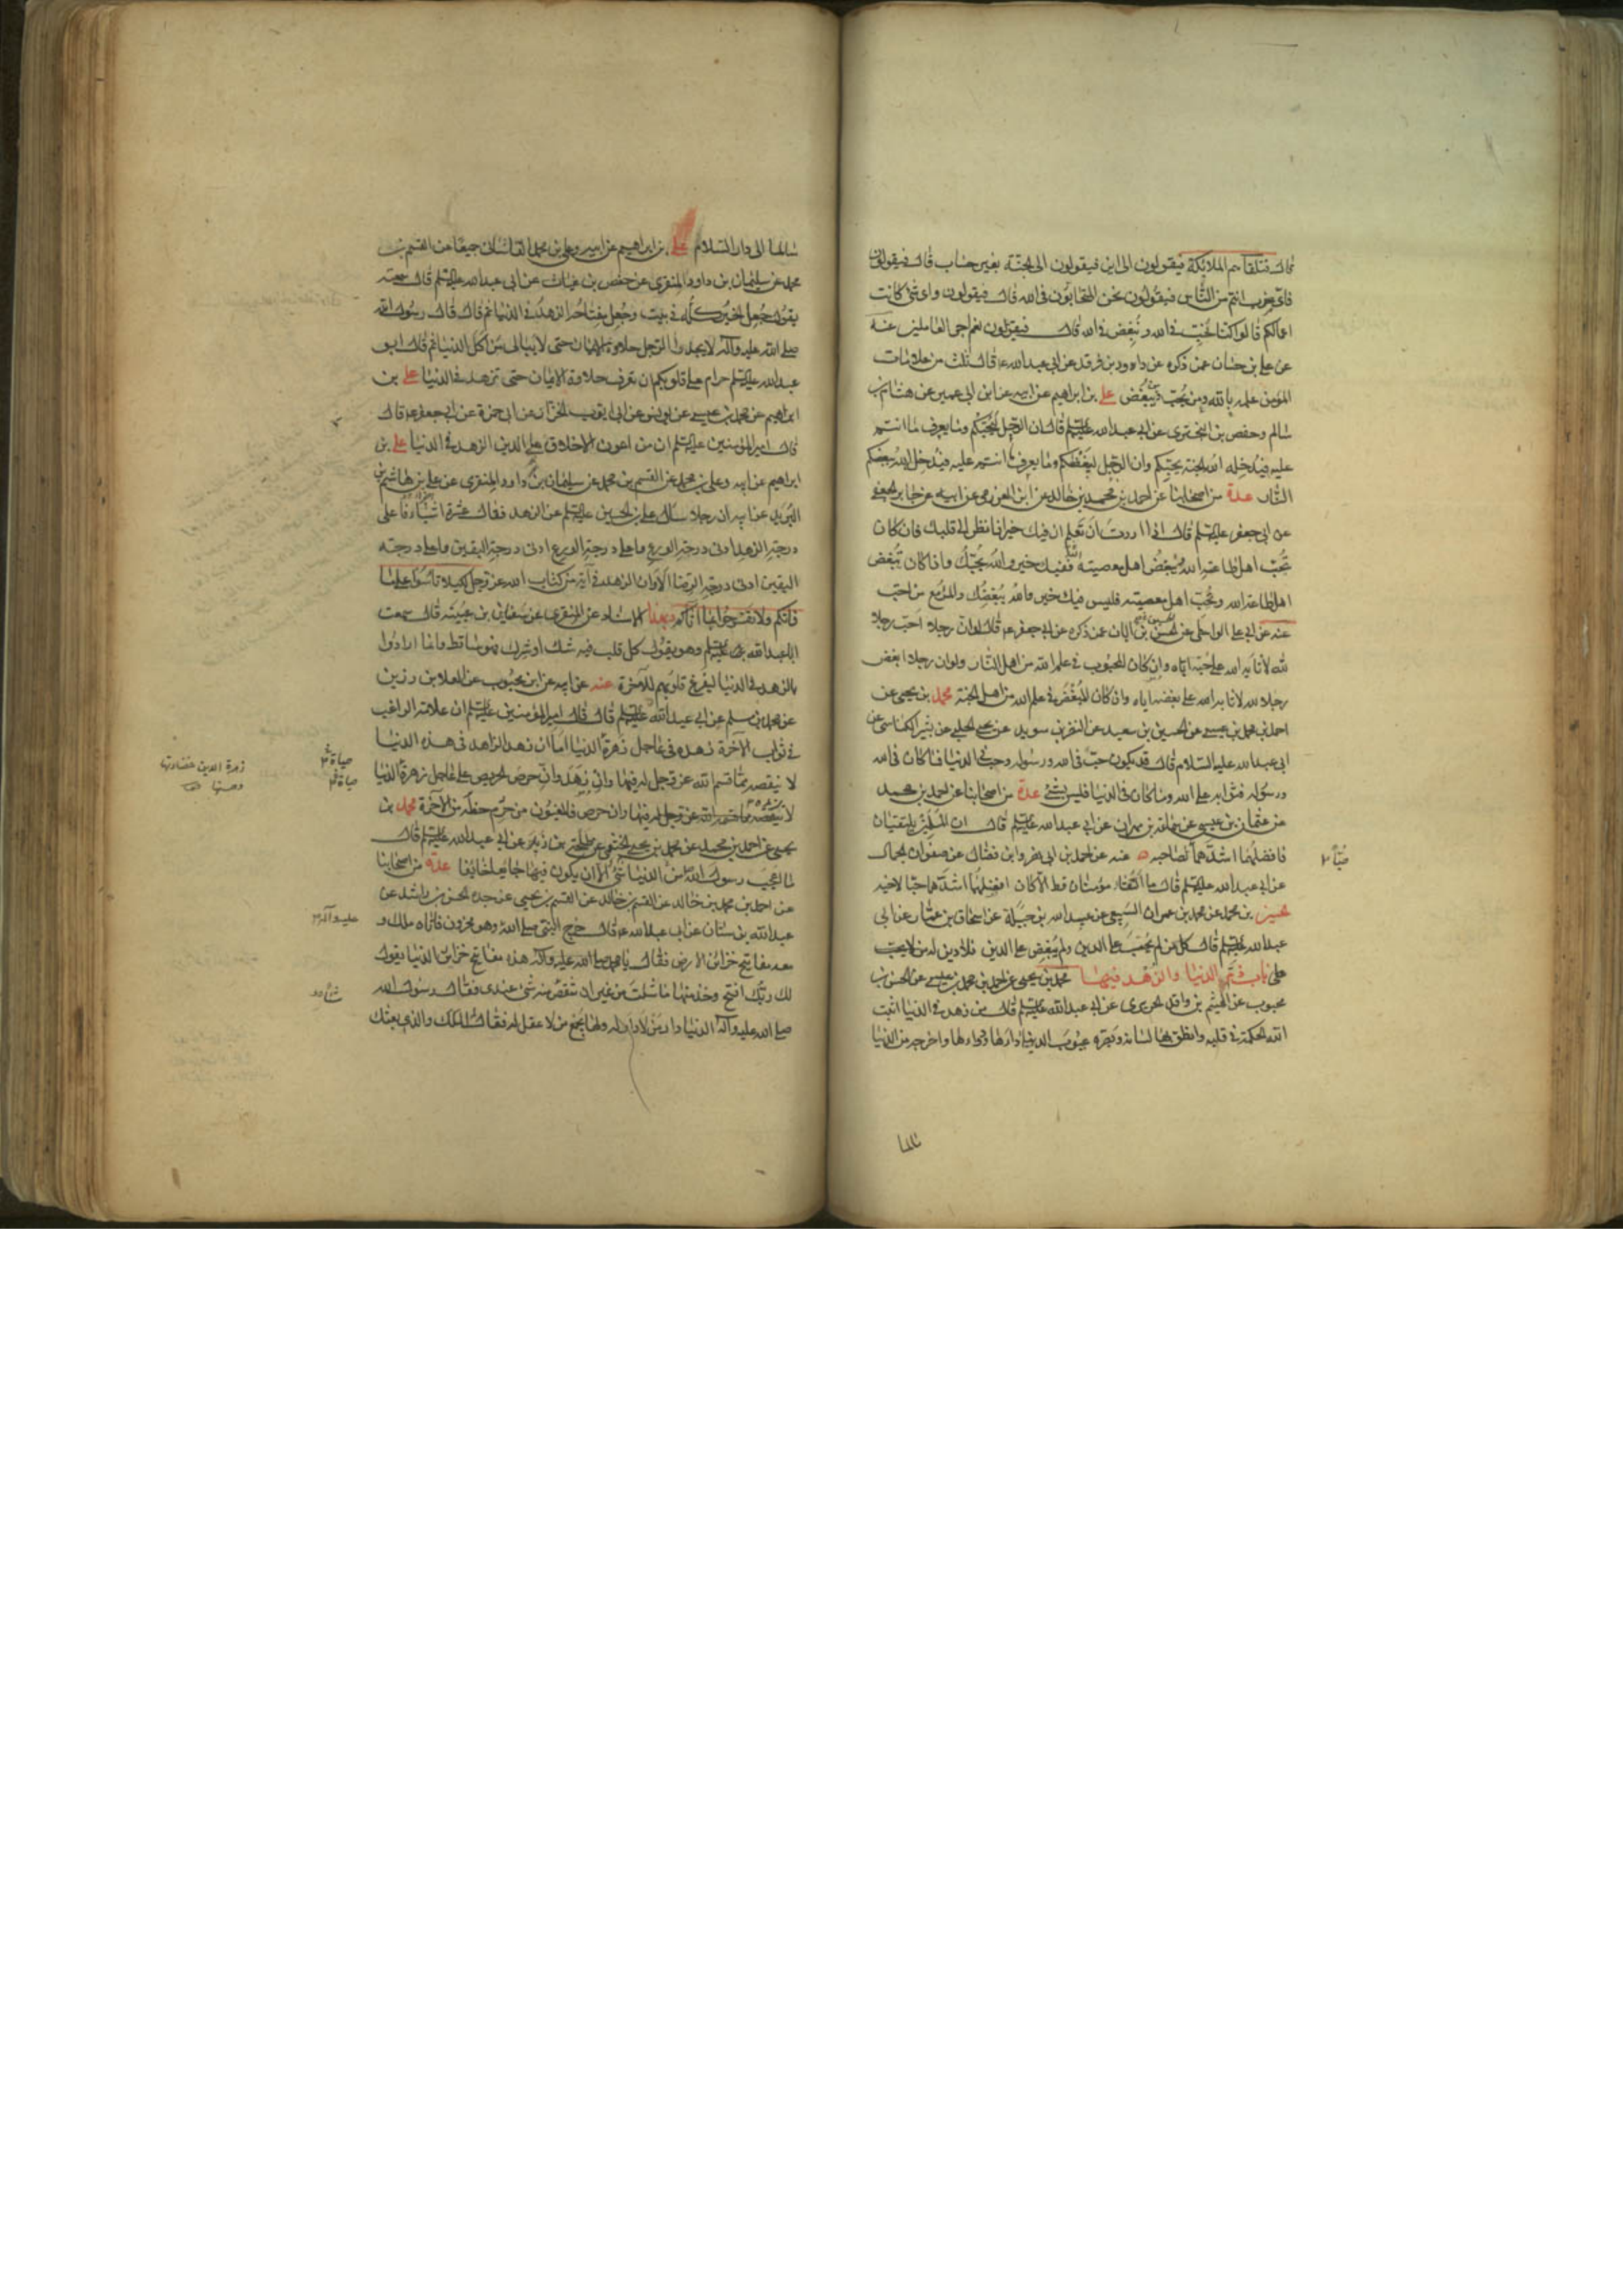 قال فتلقاهم الملائكة فيقولون الى اين فيقولون الى الجنة بغير حساب قال فيقولون
فاي ضرب انتم من الناس فيقولون نحن المتحابون في الله قال فيقولون واي شئ كانت
اعمالكم قالوا كنا نحب في الله و نبغض في الله قال فيقولون نعم اجر العاملين عنه
عن علي بن حسان عمن ذكره عن داود بن فرقد عن ابي عبد الله ع قال ثلث من علامات
المؤمن علمه بالله ومن يحب ومن يبغض علي بن ابراهيم عن ابيه عن ابن ابي عمير عن هشام بن
سالم وحفص بن البختري عن ابي عبد الله عليه السلم قال ان الرجل ليحبكم وما يعرف ما انتم
عليه فيدخله الله الجنة بحبكم وان الرجل ليبغضكم وما يعرف ما انتم عليه فيدخل الله ببغضكم
النار عدة من اصحابنا عن احمد بن محمد بن خالد عن ابن العرزمي عن ابيه عن جابر الجعفي
عن ابي جعفر عليه السلم قال اذا اردت ان تعلم ان فيك خيرا فانظر الى قلبك فان كان
يحب اهل طاعة الله ويبغض اهل معصيته ففيك خير والله يحبك واذا كان يبغض
اهل طاعة الله ويحب اهل معصيته فليس فيك خير والله يبغضك والمرء مع من احب
عنه عن ابي علي الواسطي عن الحسين بن ابان عمن ذكره عن ابي جعفر ع قال لو ان رجلا احب رجلا
لله لاثابه الله على حبه اياه وان كان المحبوب في علم الله من اهل النار ولو ان رجلا ابغض
رجلا لله لاثابه الله على بغضه اياه وان كان المبغض في علم الله من اهل الجنة محمد بن يحيى عن
احمد بن محمد بن عيسى عن الحسين بن سعيد عن النضر بن سويد عن يحيى الحلبي عن بشير الكناسي عن
ابي عبد الله عليه السلام قال قد يكون حب في الله ورسوله وحب في الدنيا فما كان في الله
ورسوله فثوابه على الله وما كان في الدنيا فليس بشئ عدة من اصحابنا عن احمد بن محمد
عن عثمان بن عيسى عن سماعة بن مهران عن ابي عبد الله عليه السلم قال ان المسلمين يلتقيان
فافضلهما اشدهما لصاحبه عنه عن احمد بن ابي نصر وابن فضال عن صفوان الجمال
حبا
عن ابي عبد الله عليه السلم قال ما التقا مؤمنان قط الا كان افضلهما اشدهما حبا لاخيه
الحسين بن محمد عن محمد بن عمران السبيعي عن عبد الله بن جبلة عن اسحاق بن عمار عن ابي
عبد الله عليه السلم قال كل من لم يحب على الدين ولم يبغض على الدين فلا دين له
باب ذم الدنيا والزهد فيها محمد بن يحيى عن احمد بن محمد بن عيسى عن الحسن بن
محبوب عن الهيثم بن واقد الحريري عن ابي عبد الله عليه السلم قال من زهد في الدنيا اثبت
الله الحكمة في قلبه وانطق بها لسانه وبصره عيوب الدنيا داءها ودواءها واخرجه من الدنيا
سالما
سالما الى دار السلام علي بن ابراهيم عن ابيه وعلي بن محمد القاساني جميعا عن القسم بن
محمد عن سليمان بن داود المنقري عن حفص بن غياث عن ابي عبد الله عليه السلم قال سمعته
يقول جعل الخير كله في بيت وجعل مفتاحه الزهد في الدنيا ثم قال قال رسول الله
صلى الله عليه وآله لا يجد الرجل حلاوة الايمان حتى لا يبالي من اكل الدنيا ثم قال ابو
عبد الله عليه السلم حرام على قلوبكم ان تعرف حلاوة الايمان حتى تزهد في الدنيا علي بن
ابراهيم عن محمد بن عيسى عن يونس عن ابي ايوب الخزاز عن ابي حمزة عن ابي جعفر ع قال
قال امير المؤمنين عليه السلم ان من اعون الاخلاق على الدين الزهد في الدنيا علي بن
ابراهيم عن ابيه وعلي بن محمد عن القسم بن محمد عن سليمان بن داود المنقري عن علي بن هاشم بن
البريد عن ابيه ان رجلا سال علي بن الحسين عليه السلم عن الزهد فقال عشرة اشياء فاعلى
درجة الزهد ادنى درجة الورع واعلى درجة الورع ادنى درجة اليقين واعلى درجة
اليقين ادنى درجة الرضا الا وان الزهد في آية من كتاب الله عز وجل لكيلا تاسوا على ما
فاتكم ولا تفرحوا بما اتاكم وبهذا الاسناد عن المنقري عن سفيان بن عيينة قال سمعت
ابا عبد الله عليه السلم وهو يقول كل قلب فيه شك او شرك فهو ساقط وانما ارادوا
بالزهد في الدنيا ليفرغ قلوبهم للآخرة عنه عن ابيه عن ابن محبوب عن العلا بن رزين
عن محمد بن مسلم عن ابي عبد الله عليه السلم قال قال امير المؤمنين عليه السلم ان علامة الراغب
في ثواب الآخرة زهده في عاجل زهرة الدنيا اما ان زهد الزاهد في هذه الدنيا
لا ينقصه مما قسم الله عز وجل له فيها وان زهد وان حرص الحريص على عاجل زهرة الدنيا
لا يزيده فيها وان حرص فالمغبون من حرم حظه من الآخرة محمد بن
يحيى عن احمد بن محمد عن محمد بن يحيى الخثعمي عن طلحة بن زيد عن ابي عبد الله عليه السلم قال
ما اعجب رسول الله من الدنيا شئ الا ان يكون فيها جائعا خائفا عدة من اصحابنا
عن احمد بن محمد بن خالد عن القسم بن يحيى عن جده الحسن بن راشد عن
عبد الله بن سنان عن ابي عبد الله ع قال خرج النبي صلى الله وهو محزون فاتاه ملك و
عليه وآله
معه مفاتيح خزائن الارض فقال يا محمد صلى الله عليه وآله هذه مفاتيح خزائن الدنيا يقول
لك ربك افتح وخذ منها ما شئت من غير ان تنقص من شئ عندي فقال رسول الله
صلى الله عليه وآله الدنيا دار من لا دار له ولها يجمع من لا عقل له فقال الملك والذي بعثك